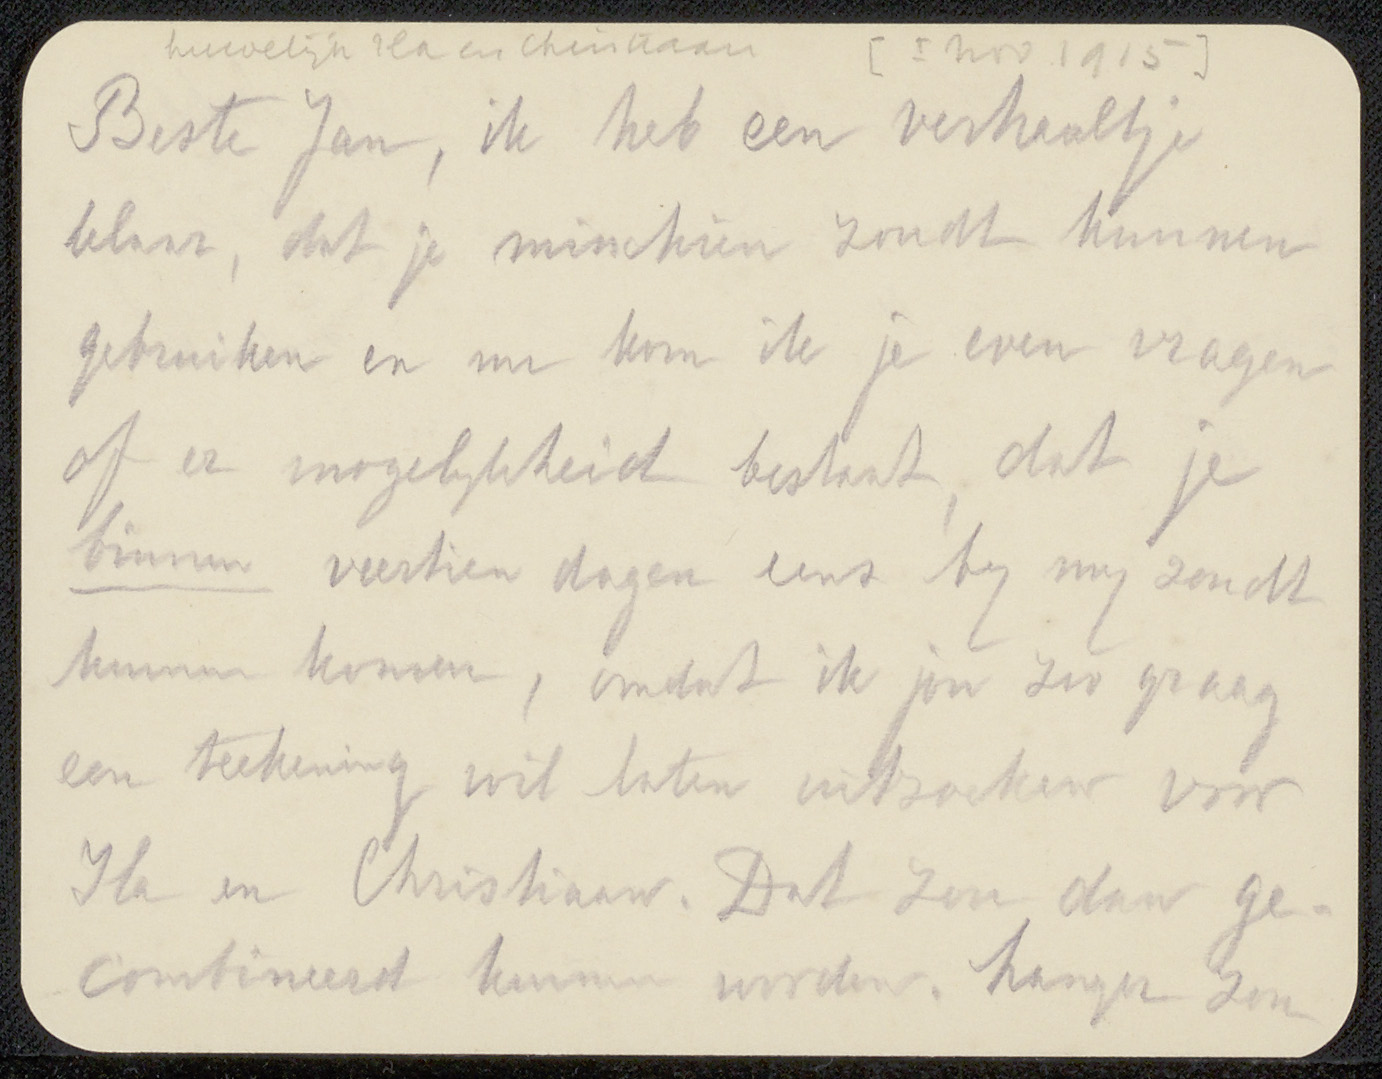 huwelijk Ila en Christiaan [± nov. 1915]
Beste Jan, ik heb een verhaaltje
klaar, dat je misschien zoudt kunnen
gebruiken en nu kom ik je even vragen
of er mogelykheid bestaat, dat je
binnen veertien dagen eens by my zoudt
kunnen komen, omdat ik jou zoo graag
een teekening wil laten uitzoeken voor
Ila en Christiaan. Dat zou dan ge-
combineerd kunnen worden. Langer zou